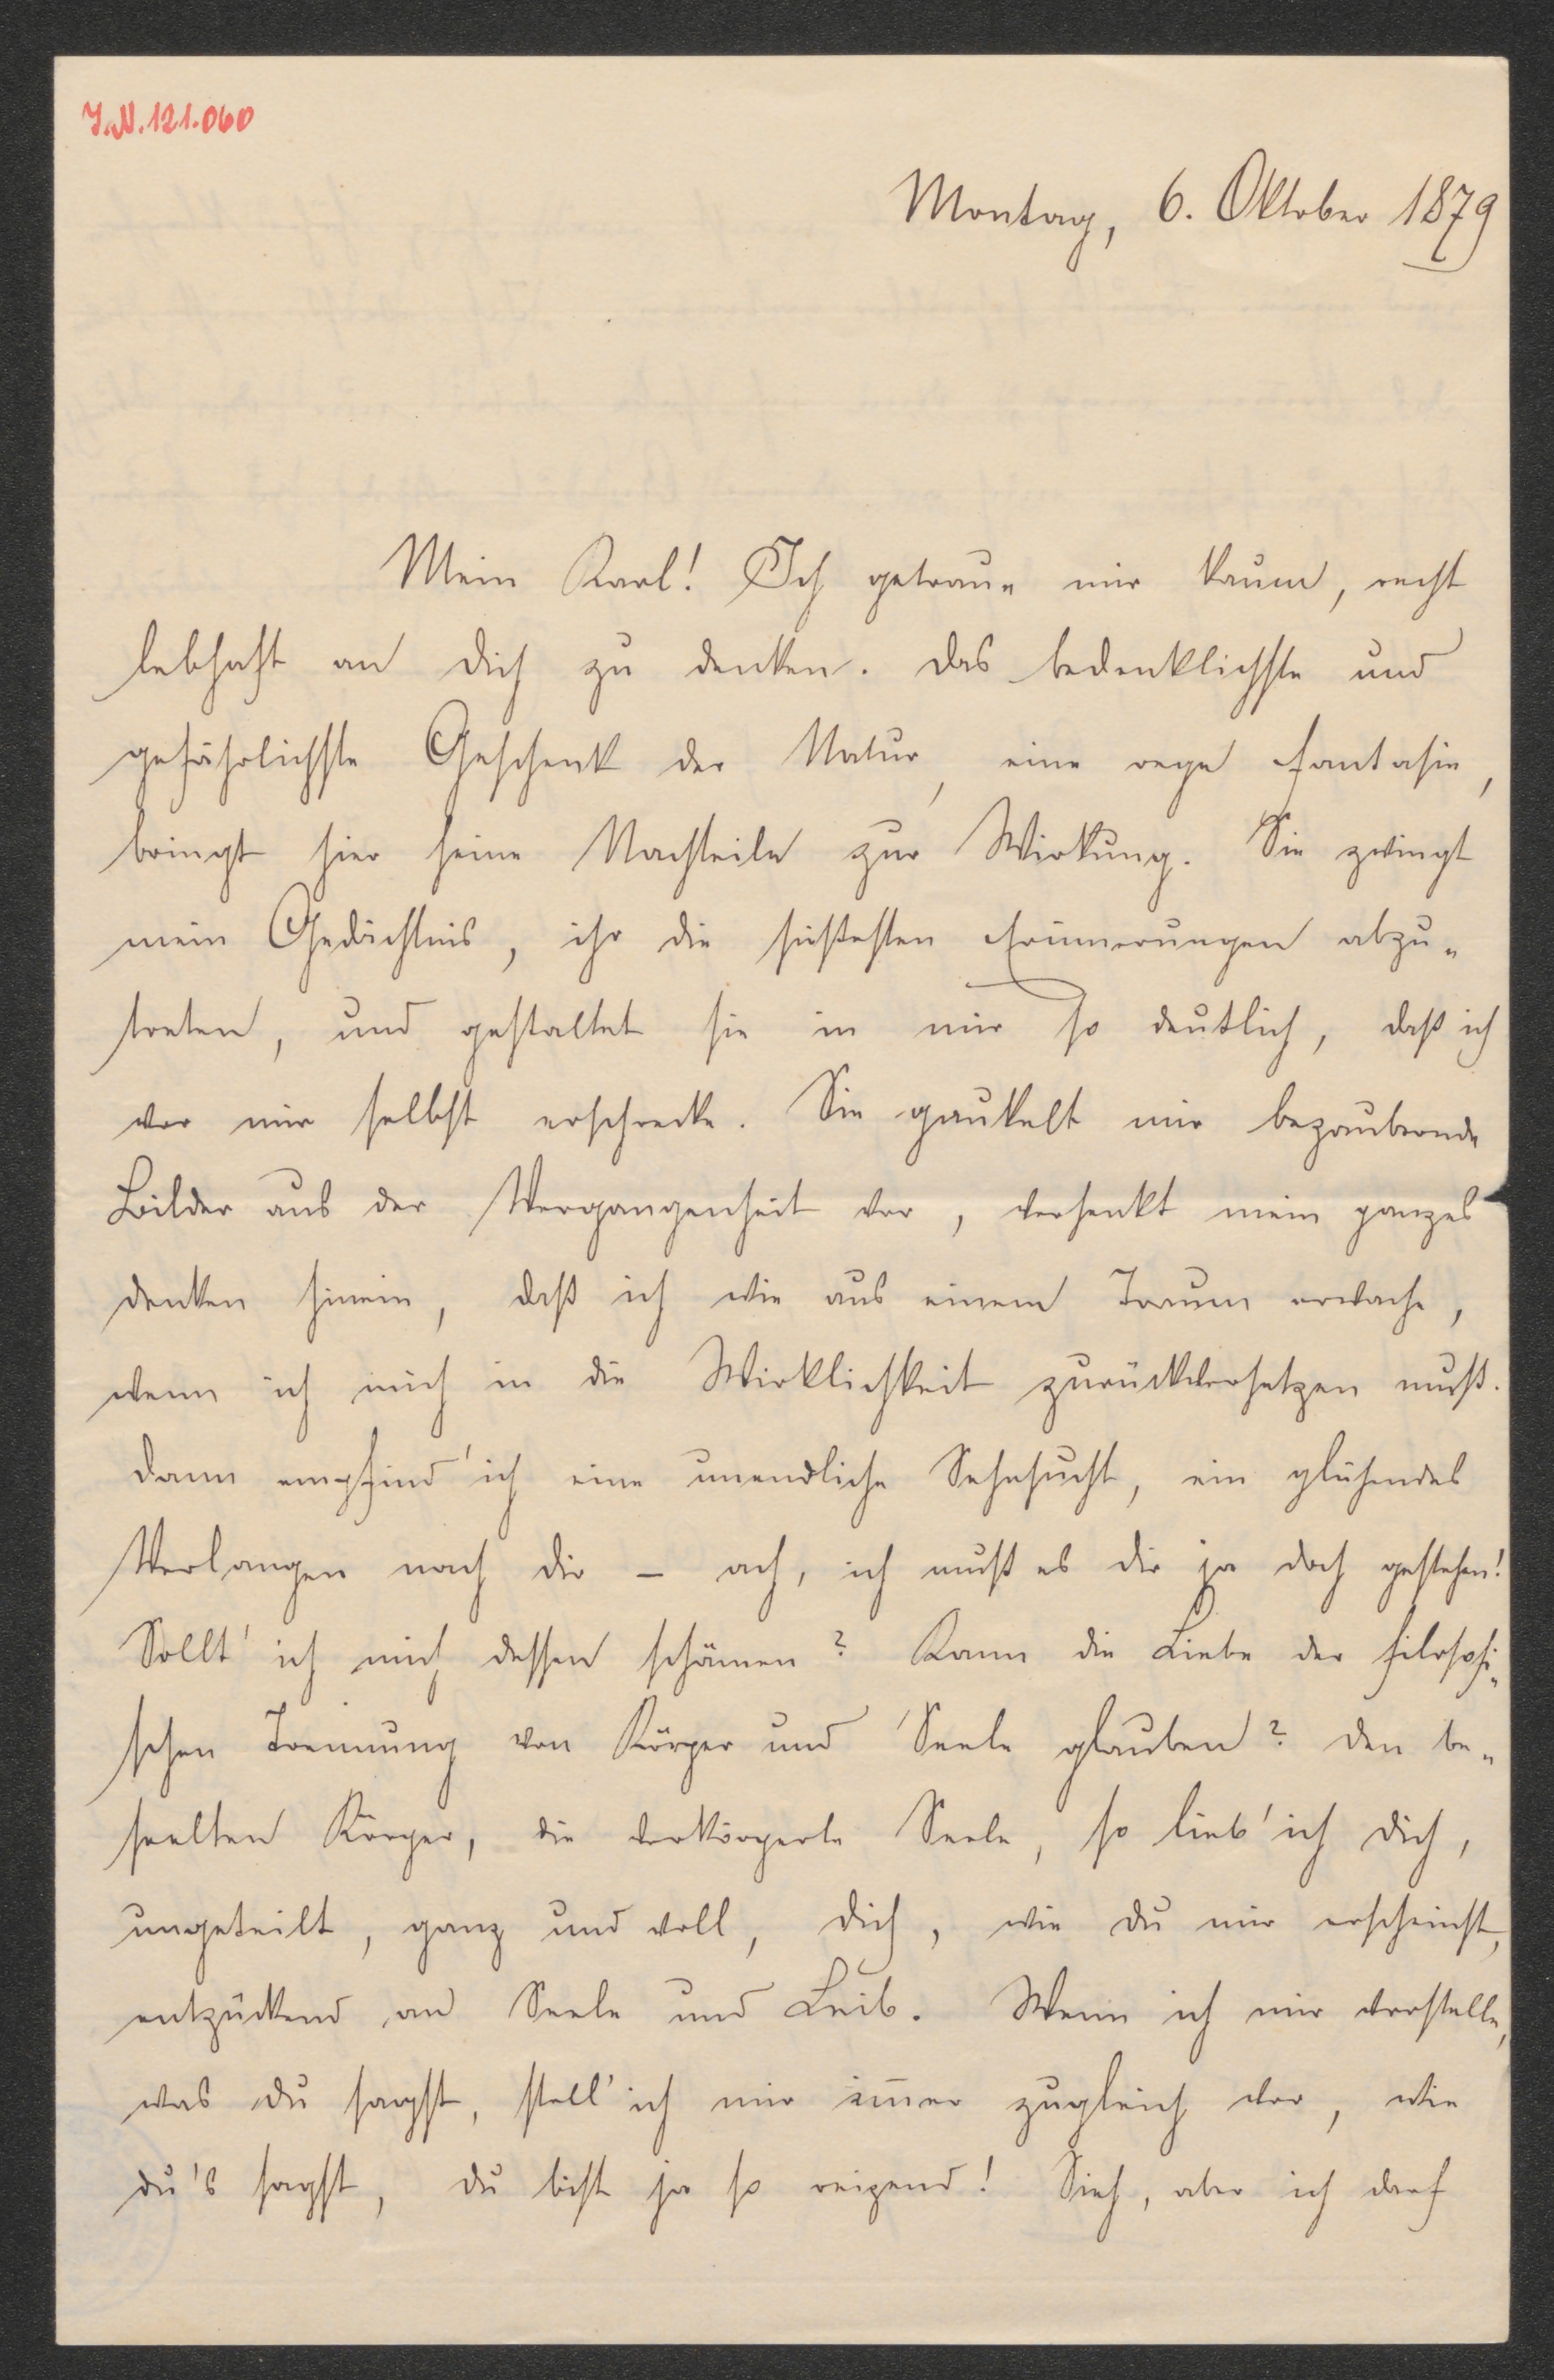 I.N.121.060
Montag, 6. Oktober 1879
Mein Karl! Ich getraue mir kaum, recht
lebhaft an dich zu denken. Das bedenklichste und
gefährlichste Geschenk der Natur, eine rege Fantasie,
bringt hier seine Nachteile zur Wirkung. Sie zwingt
mein Gedächtnis, ihr die süßesten Erinnerungen abzu-
treten, und gestaltet sie in mir so deutlich, daß ich
vor mir selbst erschrecke. Sie gaukelt mir bezaubernde
Bilder aus der Vergangenheit vor, versenkt mein ganzes
Denken hinein, daß ich wie aus einem Traum erwache,
wenn ich mich in die Wirklichkeit zurückversetzen muß.
Dann empfind' ich eine unendliche Sehnsucht, ein glühendes
Verlangen nach dir – ach, ich muß es dir ja doch gestehen!
Sollt' ich mich dessen schämen? Kann die Liebe der filosofi-
schen Trennung von Körper und Seele glauben? Den be-
seelten Körper, die verkörperte Seele, so lieb' ich dich,
ungeteilt, ganz und voll, dich, wie du mir erscheinst,
entzückend an Seele und Leib. Wenn ich mir vorstelle,
was du sagst, stell' ich mir im̄er zugleich vor, wie
du's sagst, du bist ja so reizend! Sieh, aber ich darf